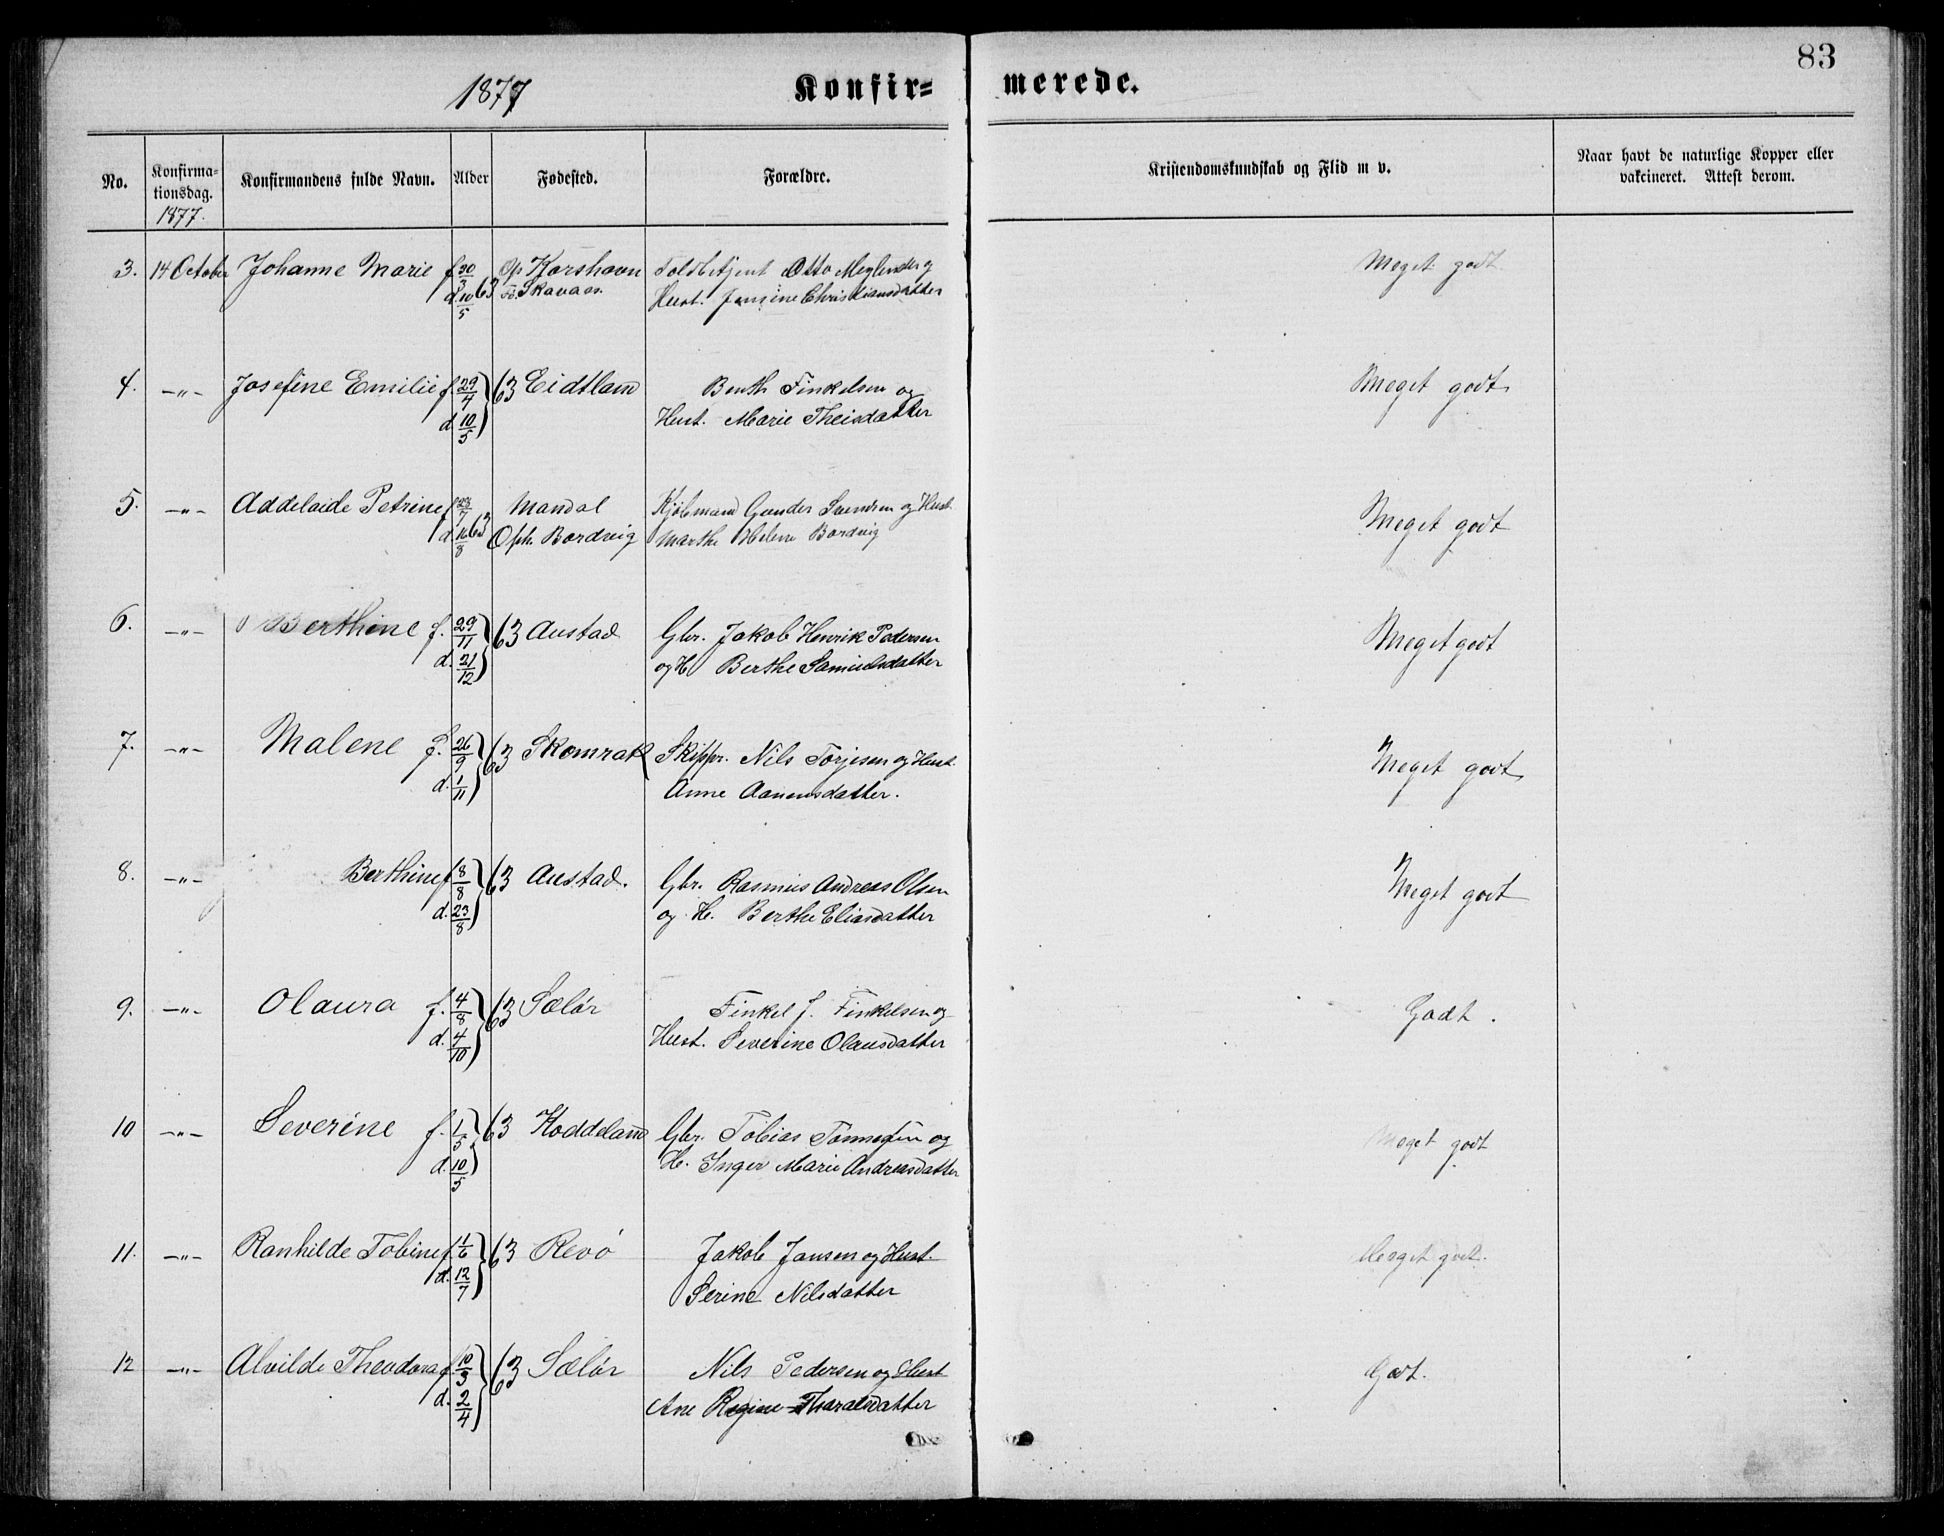 83
1877 Konfirmerede.
No. Konfirmationsdag. 1877. Konfirmandens fulde Navn. Alder Fødested. Forældre. Kristendomskundskab og Flid m v. Naar havt de naturlige Kopper eller vakcineret. Attest derom.
3. 14 October Johanne Marie f 30/3 63 Op. Korshavn Toldbetjent Otto og Meget godt
d 10/5 Hust. Jensine Christiansdatter
4. -"- Josefine Emilie f. 29/4 63 Eidtland Benth Finkelsen og Meget godt
d 10/5 Hust. Marie Theisdatter
5. -"- Addelaide Petrine f 23/7 63 Mandal Kjøbmand Gunder Svendsen og Hust. Meget godt
d 16/8 Oph. Bordvig Marthe Helene Bordvig
6. -"- Berthine f. 29/11 63 Austad Gbr. Jakob Henrik Pedersen Meget godt
d. 21/12 og H. Berthe Samuelsdatter
7. -"- Malene f. 26/9 63 Skomrak Skippr. Nils Torjesen og Hust. Meget godt
d. 1/11 Anne Aanensdatter.
8. -"- Berthine f 8/8 63 Austad. Gbr. Rasmus Andreas Olsen Meget godt
d. 23/8 og H. Berthe Eliasdatter
9. -"- Olaura f. 4/8 63 Sælør Finkel J. Finkelsen og Godt.
d. 4/10 Hust. Severine Olausdatter
10 -"- Severine f. 1/5 63 Hoddeland Gbr. Tobias Tønnesen og Meget godt
d. 10/5 H. Inger Marie Andreasdatter
11. -"- Ranhilde Tobine f. 1/6 63 Revø Jakob Jansen og Hust. Meget godt.
d. 12/7 Serine Nilsdatter
12 -"- Alvilde Theodora f. 10/3 63 Sælør Nils Pedersen og Hust Godt.
d. 2/4 Ane Regine Tharalsdatter